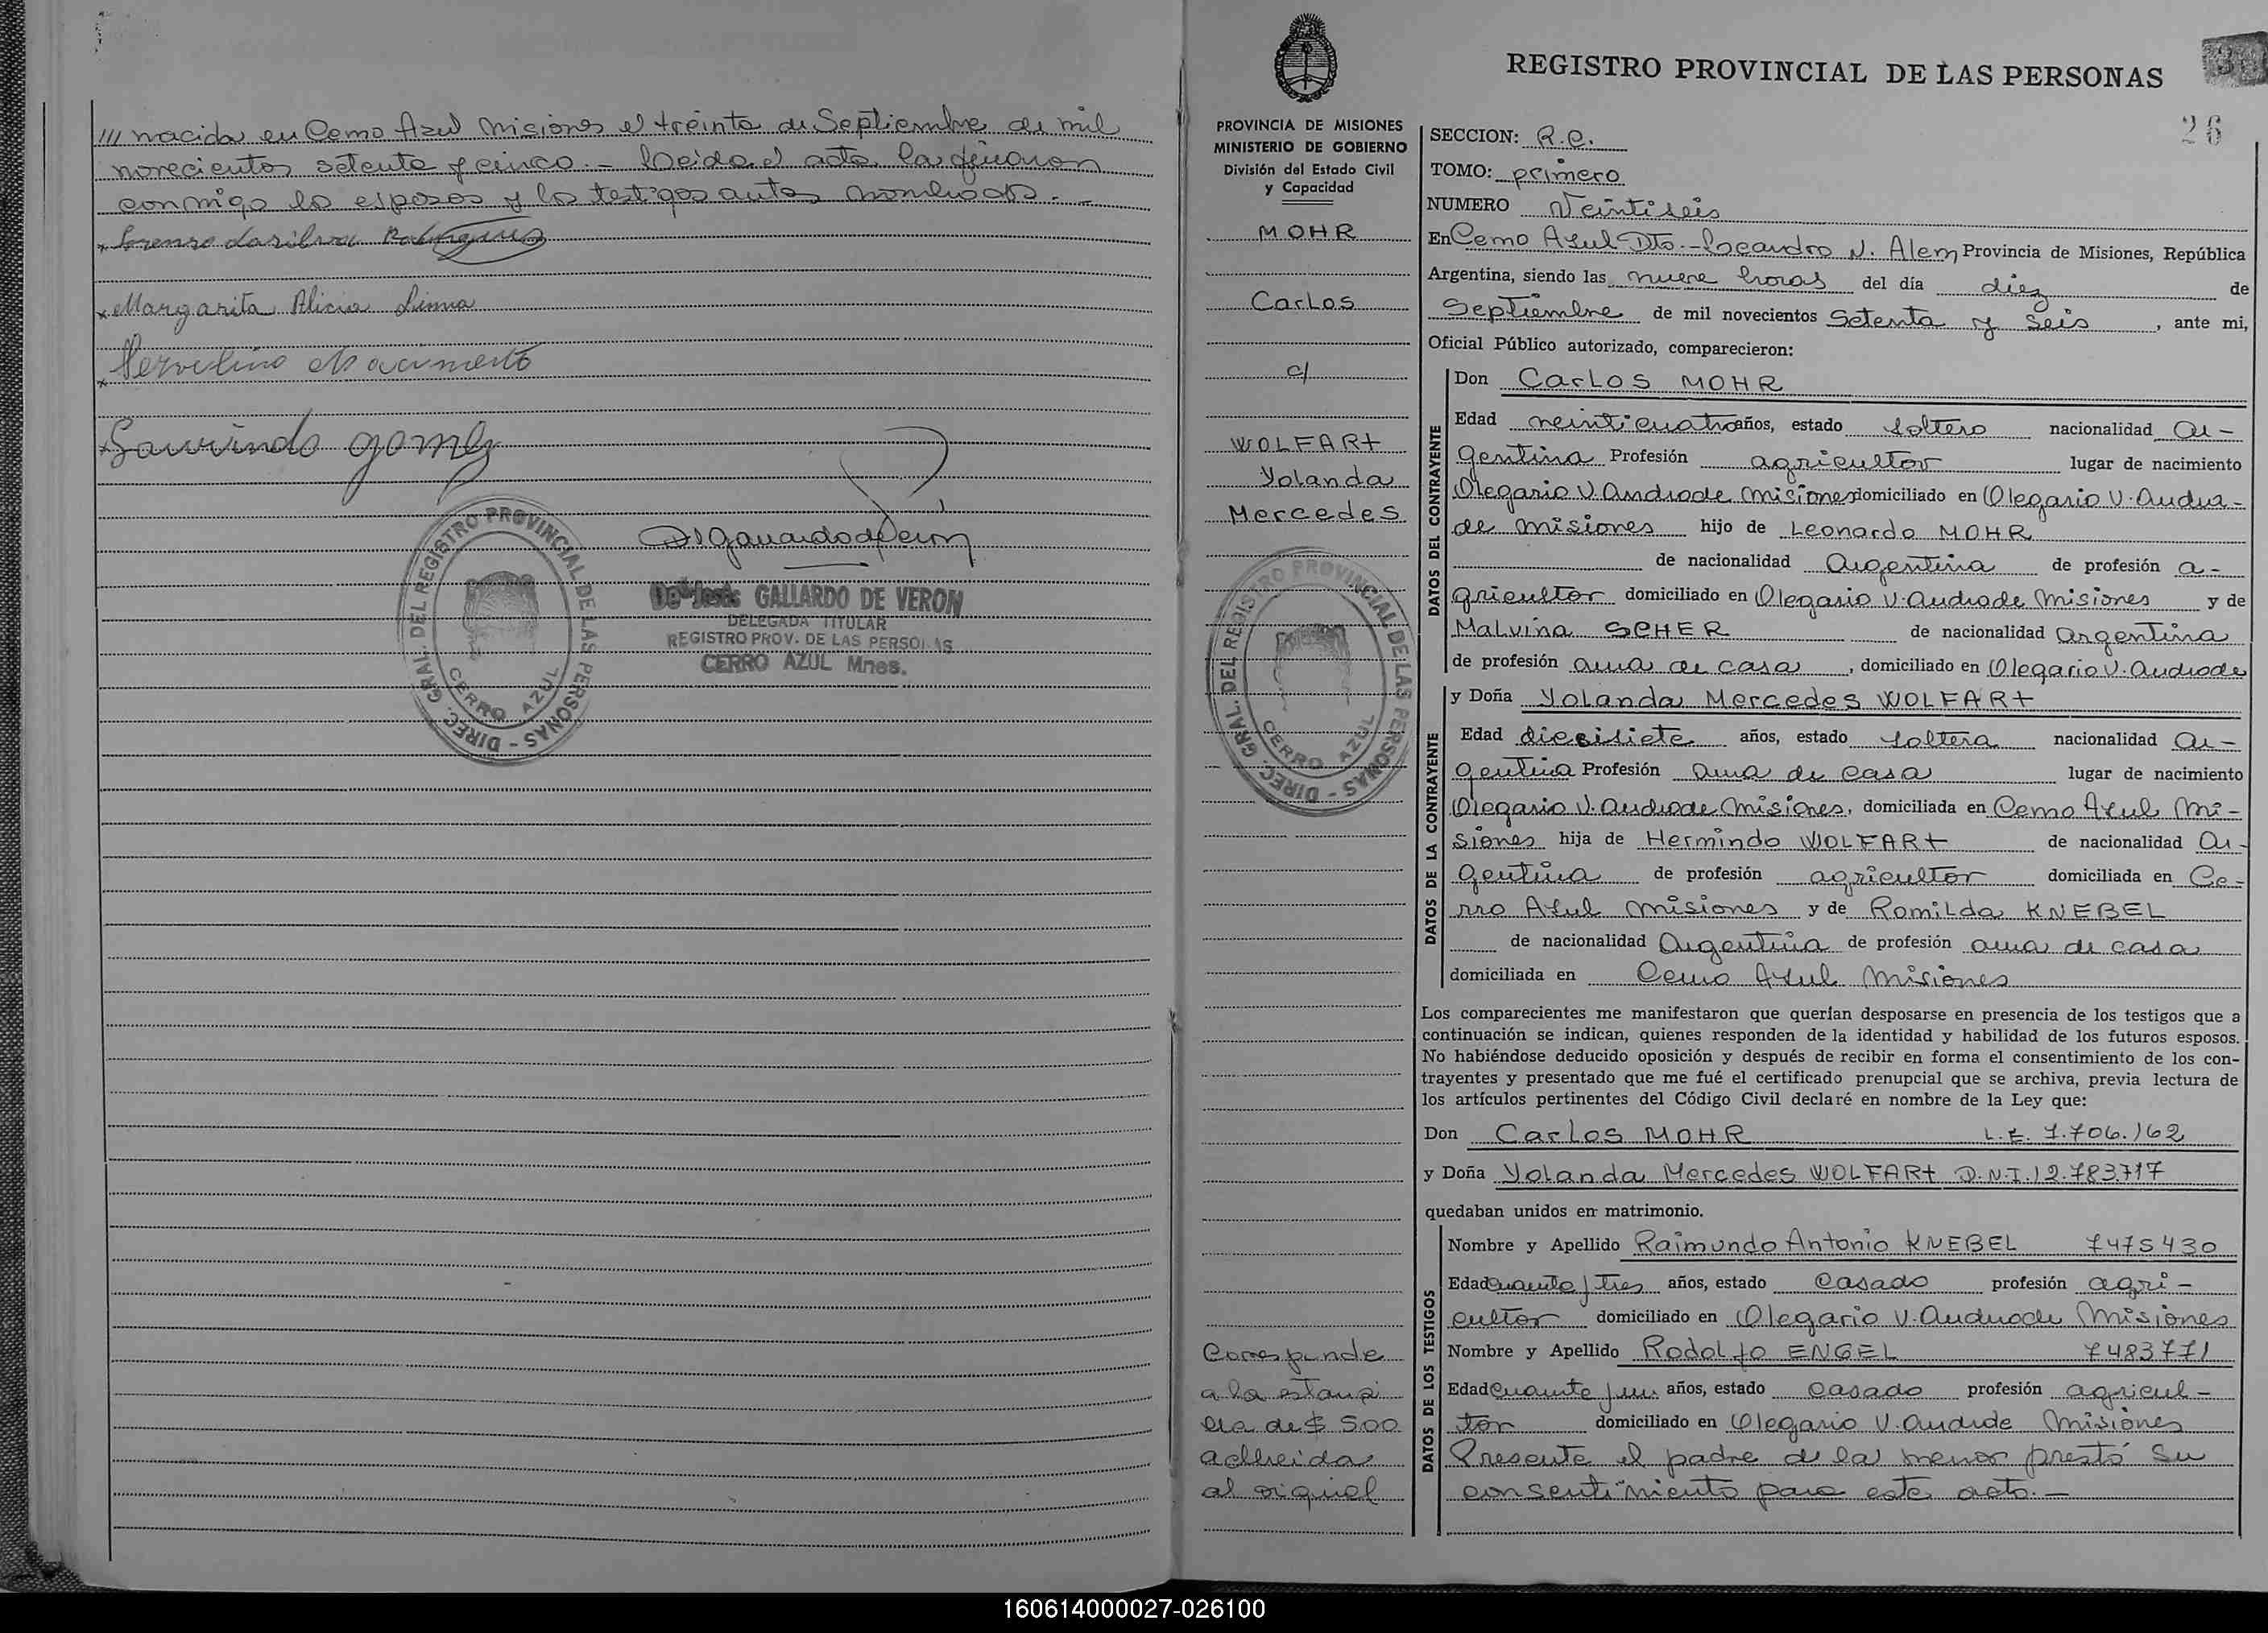 /// nacida en Cerro Azul Misiones el treinta de Septiembre de mil
novecientos setenta y cinco.- Leida el acta la firmaron
conmigo los esposos y los testigos antes nombrados.-
Margarita Alicia
gomez
DIREC. GRAL. DEL REGISTRO PROVINCIAL DE LAS PERSONAS -
CERRO AZUL
De Jesús GALLARDO DE VERON
DELEGADA TITULAR
REGISTRO PROV. DE LAS PERSONAS
CERRO AZUL Mnes.
REGISTRO PROVINCIAL DE LAS PERSONAS
26
PROVINCIA DE MISIONES
MINISTERIO DE GOBIERNO
División del Estado Civil
y Capacidad
MOHR
Carlos
c/
WOLFART
Yolanda
Mercedes
DIREC. GRAL. DEL REGISTRO PROVINCIAL DE LAS PERSONAS -
CERRO AZUL
Corresponde
a la estampi
lla de $ 500
adherida
al
SECCION: R.C.
TOMO: primero
NUMERO Veintiseis
En Cerro Azul Dto.- Leandro N. Alem Provincia de Misiones, República
Argentina, siendo las nueve horas del día diez de
Septiembre de mil novecientos Setenta y Seis, ante mi,
Oficial Público autorizado, comparecieron:
DATOS DEL CONTRAYENTE
Don Carlos MOHR
Edad veinticuatro años, estado soltero nacionalidad Ar-
gentina Profesión agricultor lugar de nacimiento
Olegario V. Andrade Misiones domiciliado en Olegario V. Andra-
de Misiones hijo de Leonardo MOHR
de nacionalidad Argentina de profesión a-
gricultor domiciliado en Olegario V. Andrade Misiones y de
Malvina SCHER de nacionalidad argentina
de profesión ama de casa, domiciliado en Olegario V. Andrade
y Doña Yolanda Mercedes WOLFART
DATOS DE LA CONTRAYENTE
Edad diecisiete años, estado soltera nacionalidad Ar-
gentina Profesión ama de casa lugar de nacimiento
Olegario V. Andrade Misiones, domiciliada en Cerro Azul Mi-
siones hija de Hermindo WOLFART de nacionalidad Ar-
gentina de profesión agricultor domiciliada en Ce-
rro Azul Misiones y de Romilda KNEBEL
de nacionalidad Argentina de profesión ama de casa
domiciliada en Cerro Azul Misiones
Los comparecientes me manifestaron que querían desposarse en presencia de los testigos que a
continuación se indican, quienes responden de la identidad y habilidad de los futuros esposos.
No habiéndose deducido oposición y después de recibir en forma el consentimiento de los con-
trayentes y presentado que me fué el certificado prenupcial que se archiva, previa lectura de
los artículos pertinentes del Código Civil declaré en nombre de la Ley que:
Don Carlos MOHR L.E. 7.706.162
y Doña Yolanda Mercedes WOLFART D.N.I. 12.783.717
quedaban unidos en matrimonio.
DATOS DE LOS TESTIGOS
Nombre y Apellido Raimundo Antonio KNEBEL 7475430
Edad cuarenta y tres años, estado Casado profesión agri-
cultor domiciliado en Olegario V. Andrade Misiones
Nombre y Apellido Rodolfo ENGEL 7483771
Edad cuarenta y un años, estado casado profesión agricul-
tor domiciliado en Olegario V. Andrde Misiones
Presente el padre de la menor prestó su
consentimiento para este acto.-
160614000027-026100